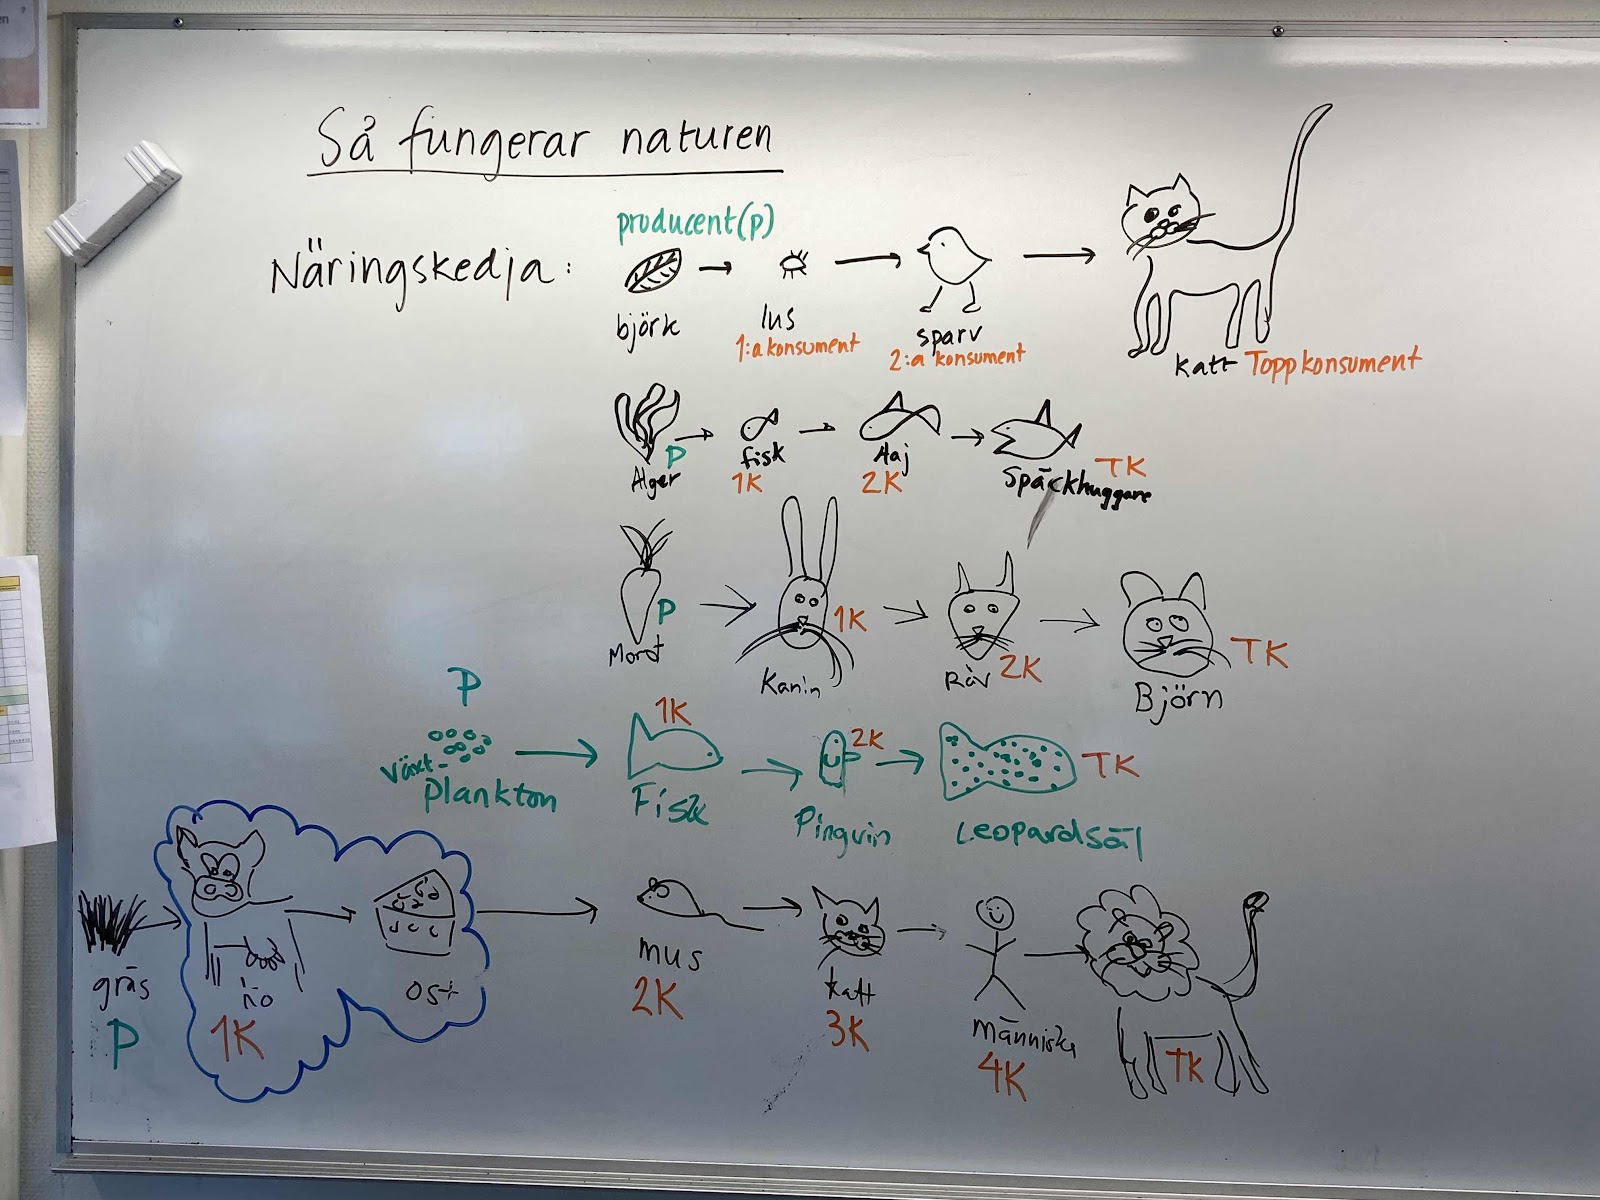 Så fungerar naturen
producent(p)
Näringskedja:
björk
lus
1:a konsument
sparv
2:a konsument
katt Toppkonsument
P
Alger
fisk
1K
Haj
2K
TK
Späckhuggare
P
Morot
1K
Kanin
Räv 2K
TK
Björn
P
växt-
plankton
1K
Fisk
2K
Pingvin
TK
Leopardsäl
gräs
P
ko
1K
ost
mus
2K
katt
3K
människa
4K
TK